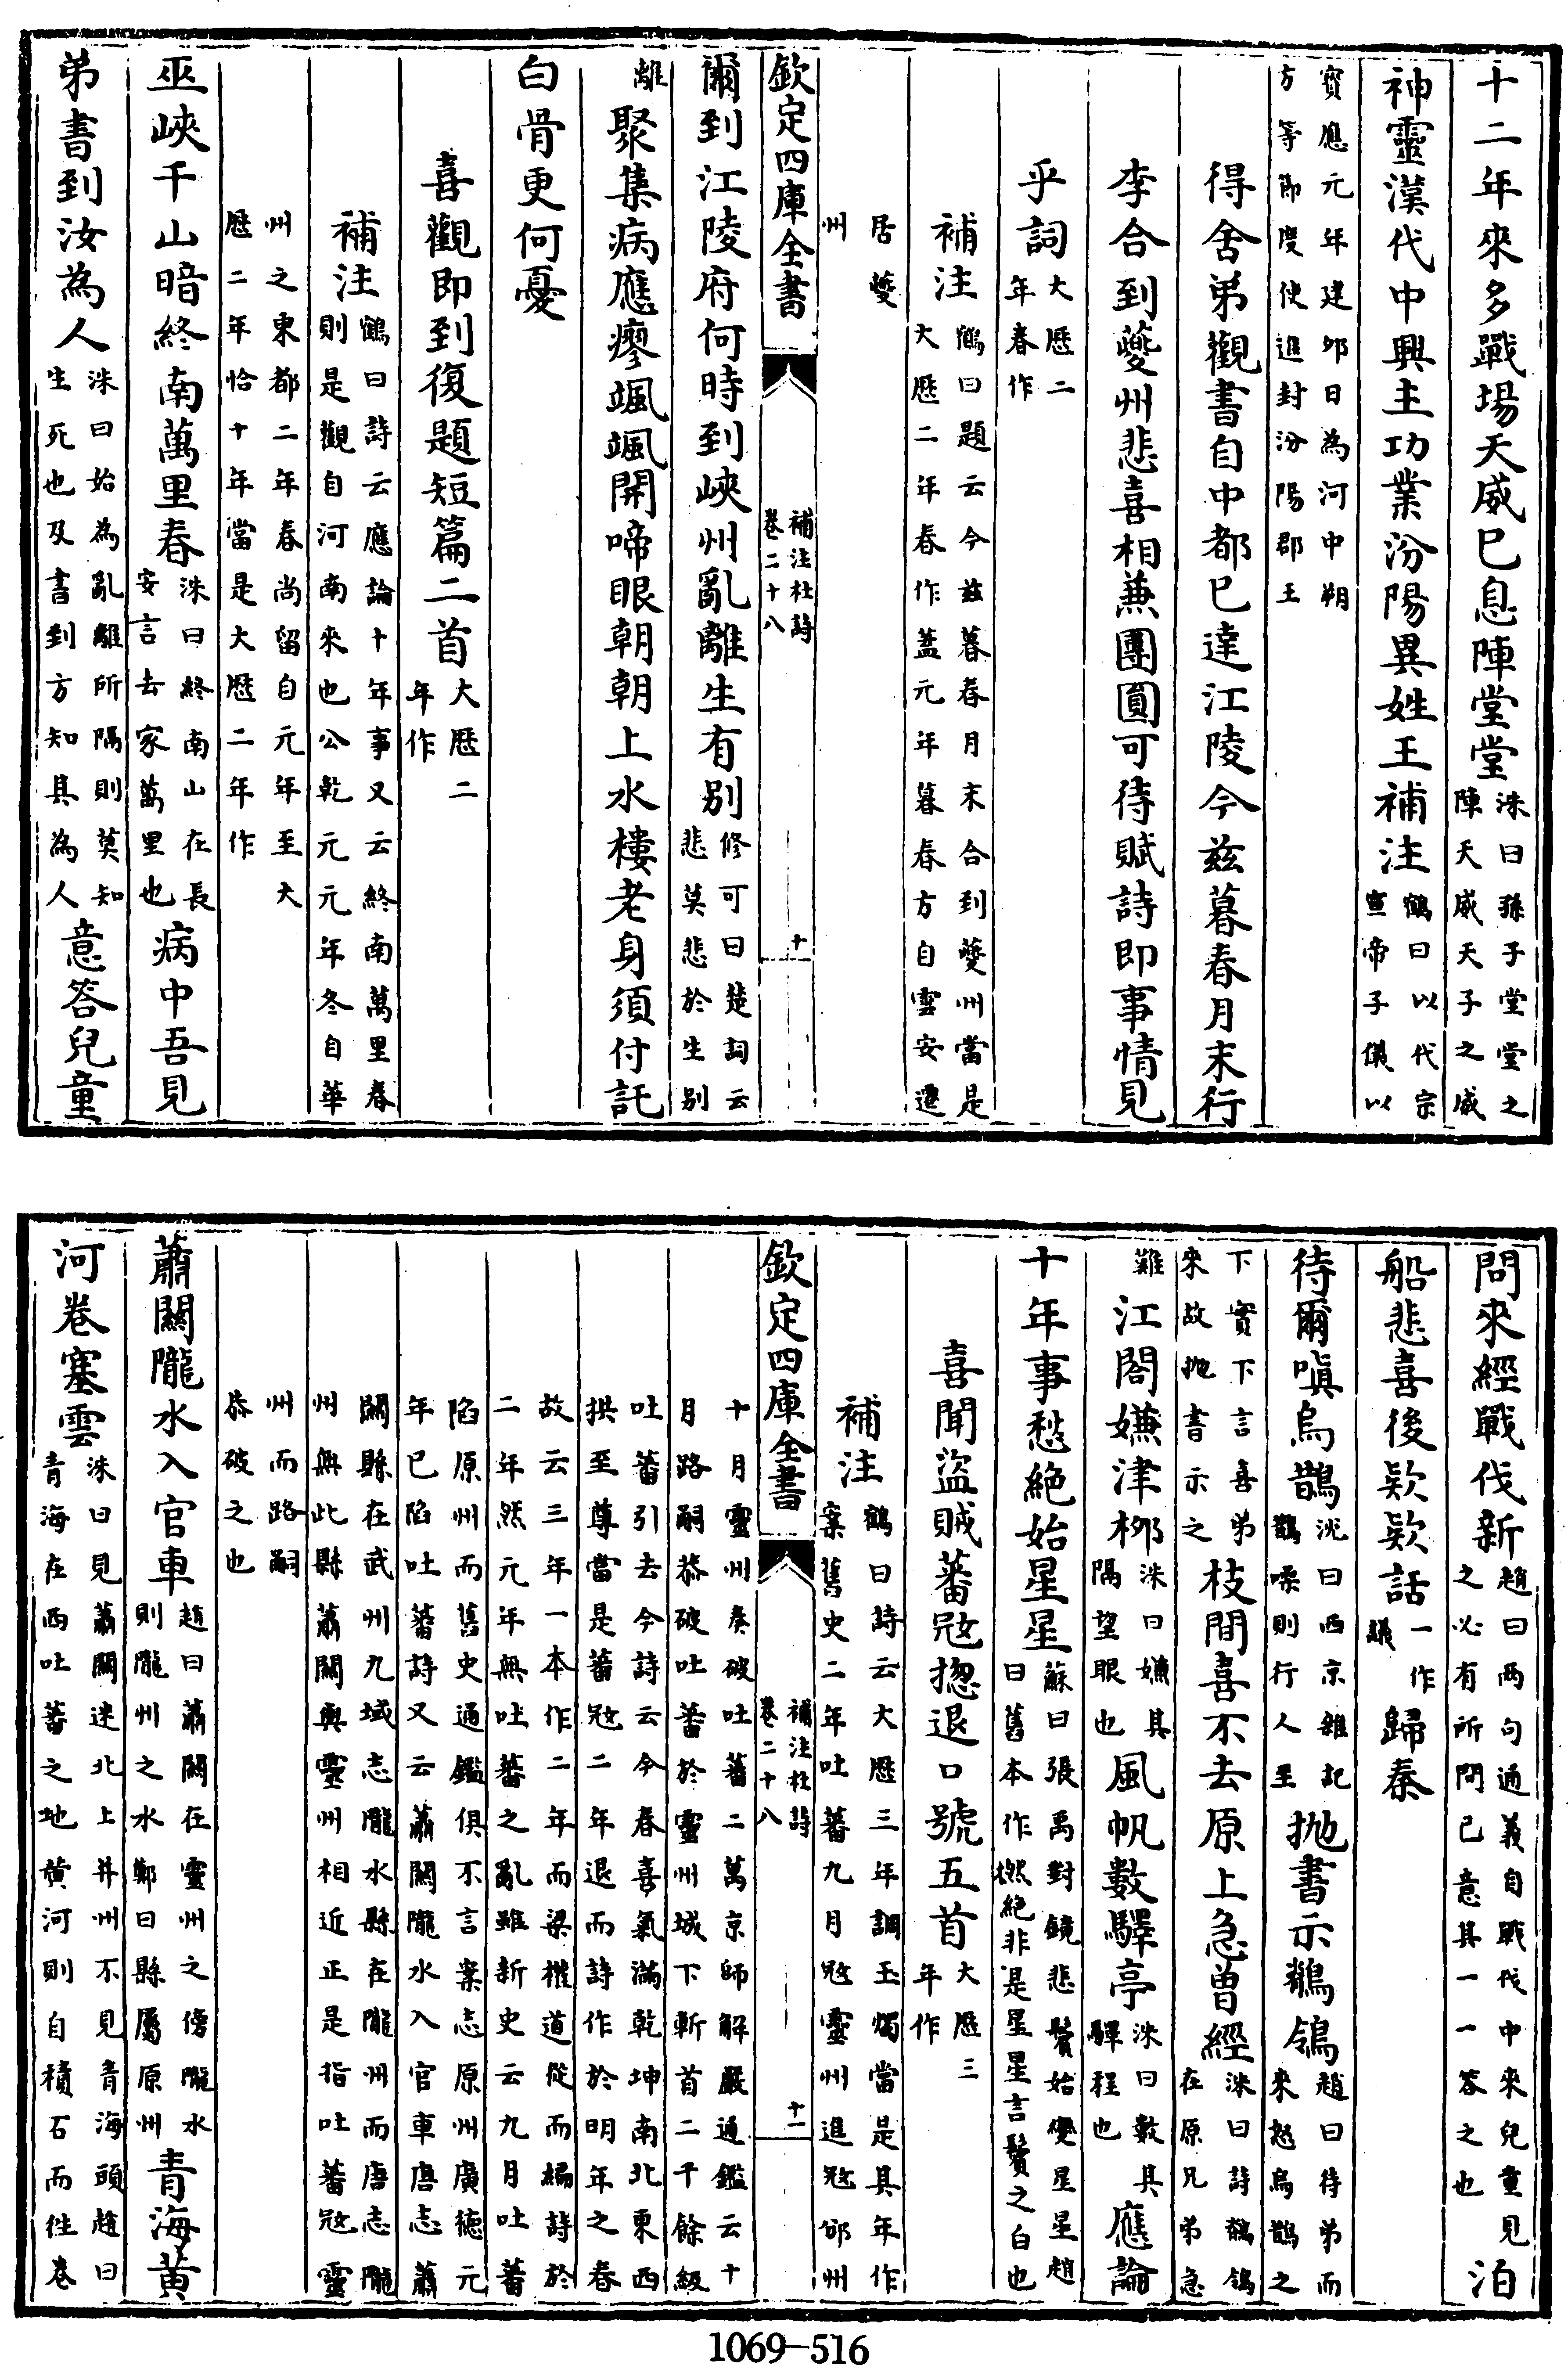 十二年來多戰場天威已息陣堂堂洙曰孫子堂堂之陣天威天子之威
神靈漢代中興主功業汾陽異姓王補注鶴曰以代宗宣帝子儀以
寳應元年建卯日為河中朔方等節度使進封汾陽郡王
得舍弟觀書自中都已達江陵今兹暮春月末行
李合到夔州悲喜相兼團圓可待賦詩即事情見
乎詞大厯二年春作
補注鶴曰題云今兹暮春月末合到夔州當是大厯二年春作蓋元年暮春方自雲安遷
居夔州
欽定四庫全書
補注杜詩卷二十八
十
爾到江陵府何時到峽州亂離生有别修可曰楚詞云悲莫悲於生别
離聚集病應瘳颯颯開啼眼朝朝上水樓老身須付託
白骨更何憂
喜觀即到復題短篇二首大厯二年作
補注鶴曰詩云應論十年事又云終南萬里春則是觀自河南來也公乾元元年冬自華
州之東都二年春尚留自元年至大厯二年恰十年當是大厯二年作
巫峽千山暗終南萬里春洙曰終南山在長安言去家萬里也病中吾見
弟書到汝為人洙曰始為亂離所隔則莫知生死也及書到方知具為人意答兒童
問來經戰伐新趙曰两句通義自戰伐中來兒童見之必有所問已意其一一答之也泊
船悲喜後欵欵話一作議歸秦
待爾嗔烏鵲洙曰西京雜記鵲噪則行人至拋書示鶺鴒趙曰待弟而來怒烏鵲之
下實下言喜弟來故拋書示之枝間喜不去原上急曾經洙曰詩鶺鴒在原兄弟急
難江閣嫌津柳洙曰嫌其隔望眼也風帆數驛亭洙曰數其驛程也應論
十年事愁絕始星星蘇曰張禹對鏡悲鬢始變星星趙曰舊本作愀絕非是星星言鬢之白也
喜聞盜賊蕃冦揔退口號五首大厯三年作
補注鶴曰詩云大厯三年調玉燭當是其年作案舊史二年吐蕃九月冦靈州進冦邠州
欽定四庫全書
補注杜詩卷二十八
十一
十月靈州奏破吐蕃二萬京師解嚴通鑑云十月路嗣恭破吐蕃於靈州城下斬首二千餘級
吐蕃引去今詩云今春喜氣滿乾坤南北東西拱至尊當是蕃冦二年退而詩作於明年之春
故云三年一本作二年而梁權道從而編詩於二年然元年無吐蕃之亂雖新史云九月吐蕃
陷原州而舊史通鑑俱不言案志原州廣德元年已陷吐蕃詩又云蕭關隴水入官車唐志蕭
關縣在武州九域志隴水縣在隴州而唐志隴州無此縣蕭關與靈州相近正是指吐蕃冦靈
州而路嗣恭破之也
蕭關隴水入官車趙曰蕭關在靈州之傍隴水則隴州之水鄭曰縣屬原州青海黄
河卷塞雲洙曰見蕭關迷北上并州不見青海頭趙曰青海在西吐蕃之地黄河則自積石而徃卷
1069-516